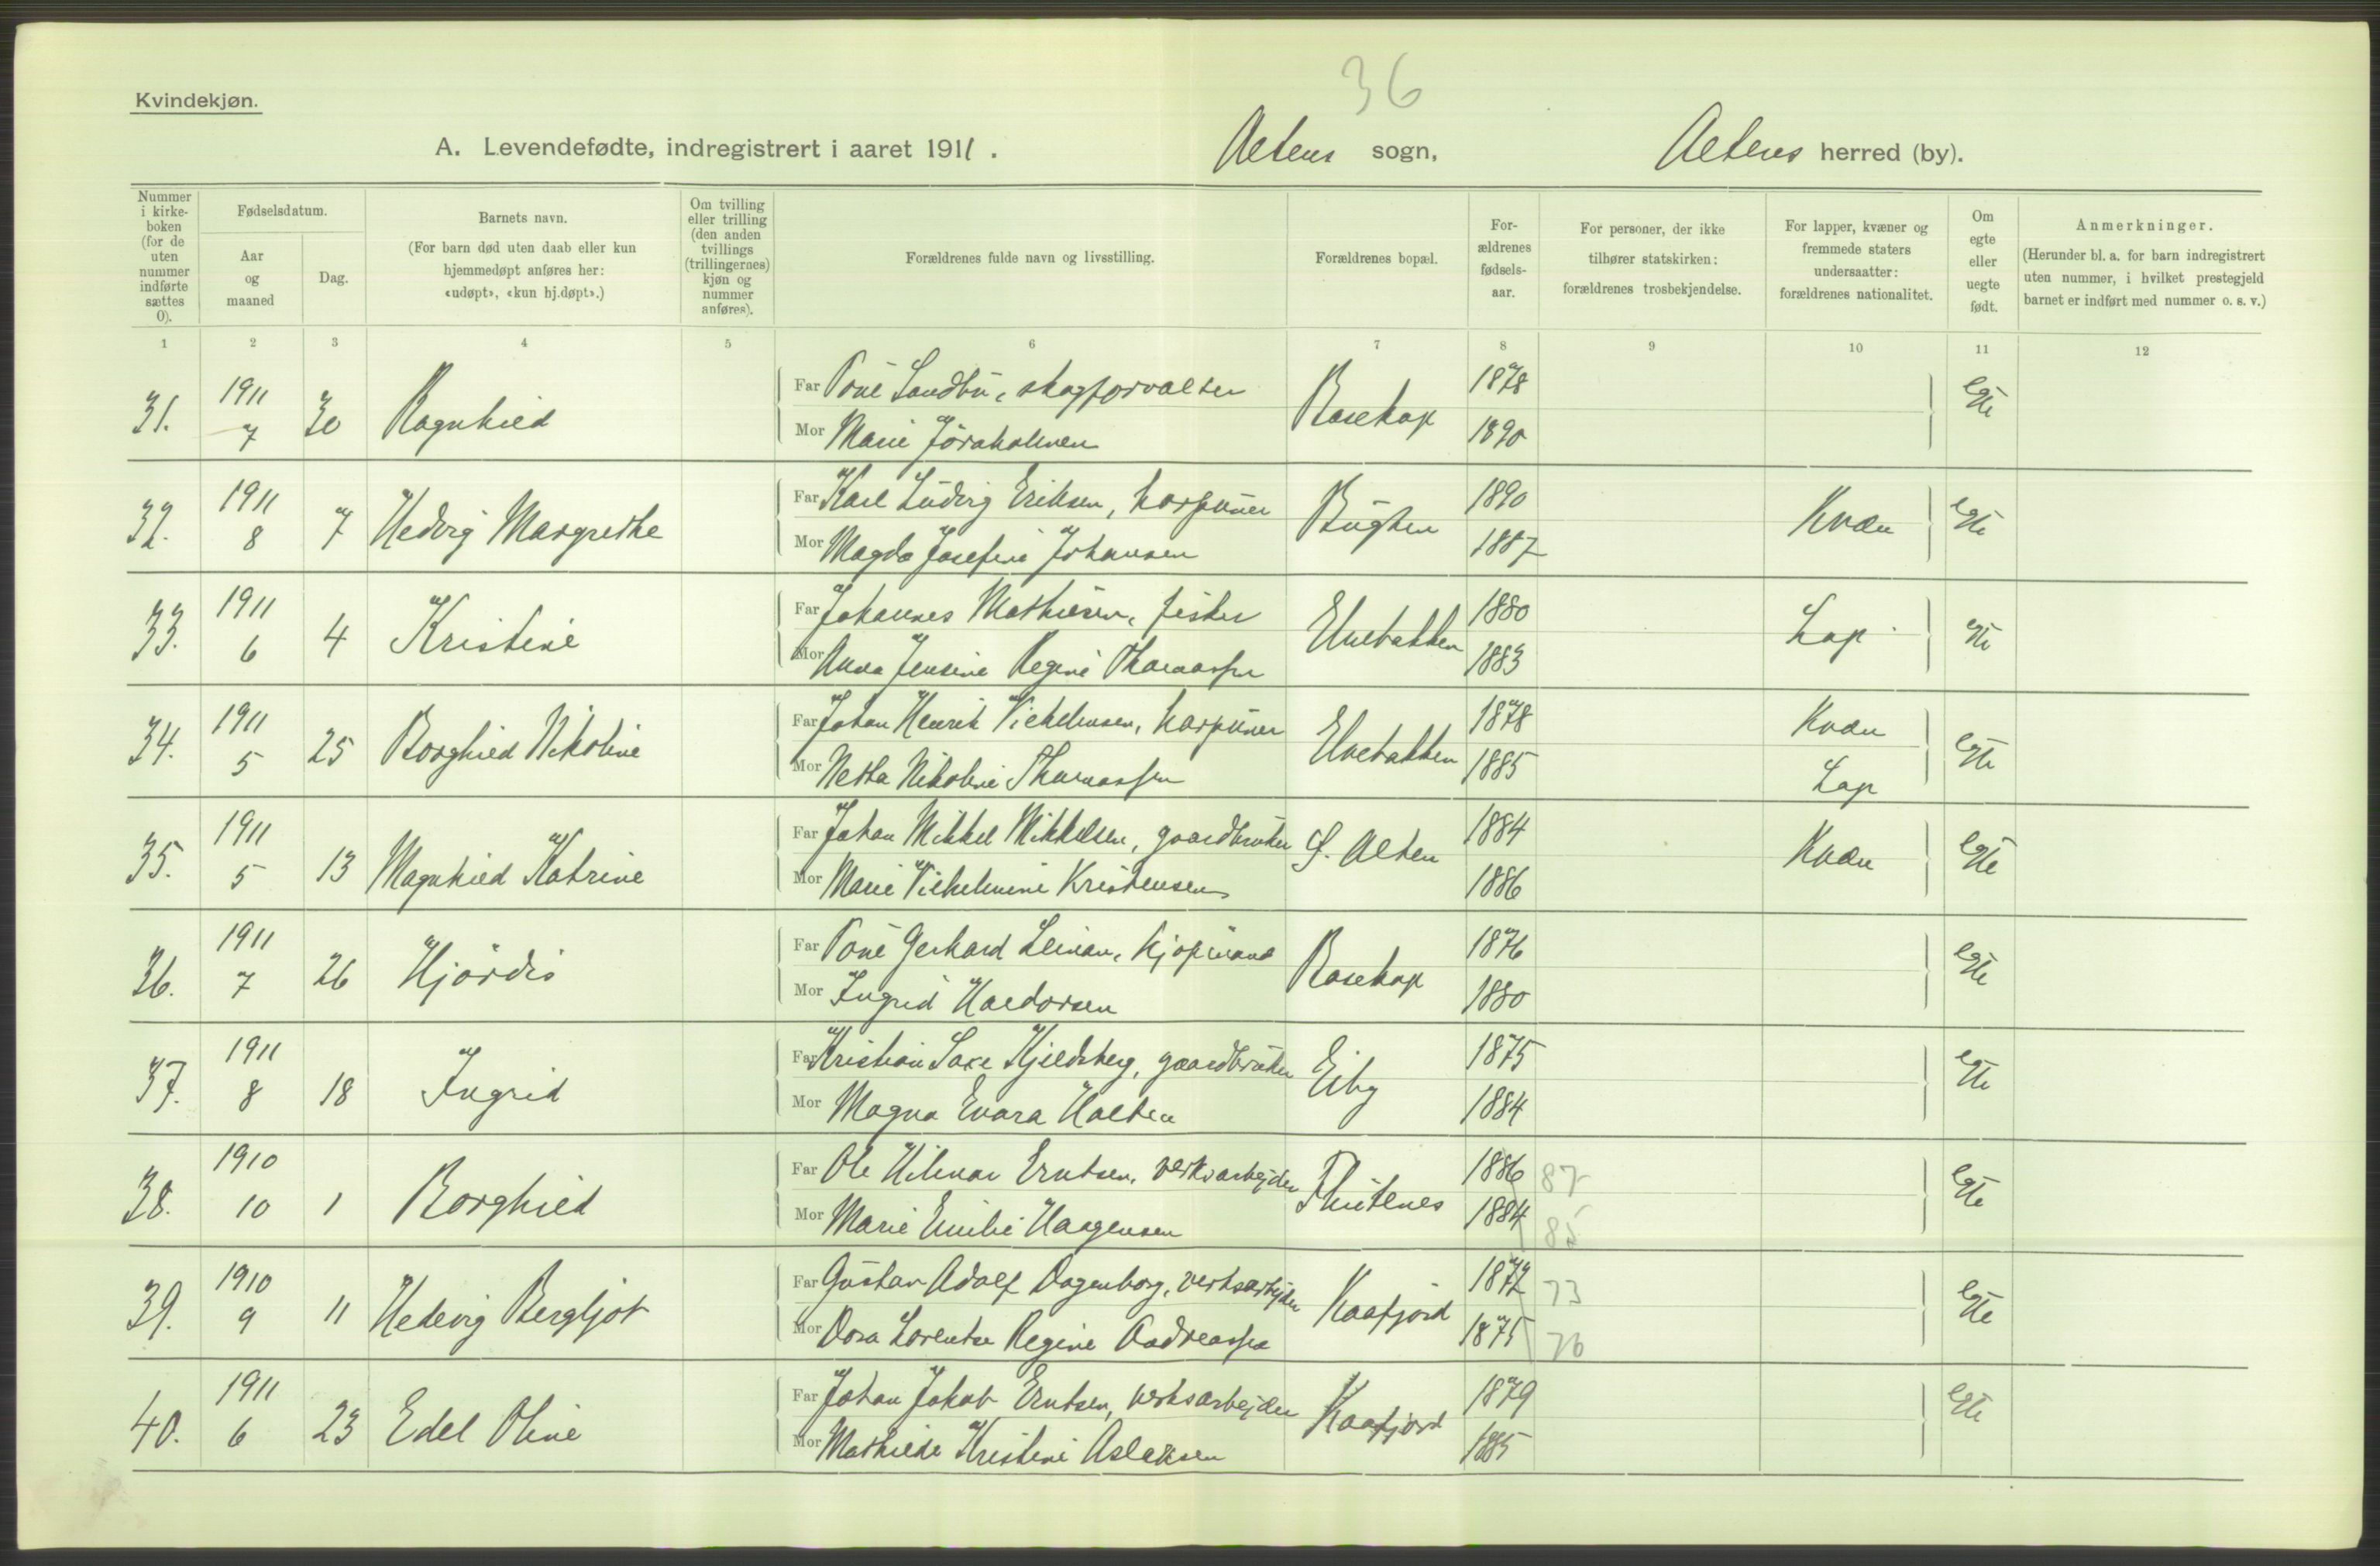 36
Kvindekjøn.
A. Levendefødte, indregistrert i aaret 1911. Altens sogn, Altens herred (by).
Nummer i kirkeboken (for de uten nummer indførte sættes 0).
Fødselsdatum.
Aar og maaned
Dag.
Barnets navn.
(For barn død uten daab eller kun hjemmedøpt anføres her: «udøpt», «kun hj.døpt».)
Om tvilling eller trilling (den anden tvillings (trillingernes) kjøn og nummer anføres).
Forældrenes fulde navn og livsstilling.
Forældrenes bopæl.
Forældrenes fødselsaar.
For personer, der ikke tilhører statskirken: forældrenes trosbekjendelse.
For lapper, kvæner og fremmede staters undersaatter: forældrenes nationalitet.
Om egte eller uegte født.
Anmerkninger.
(Herunder bl. a. for barn indregistrert uten nummer, i hvilket prestegjeld barnet er indført med nummer o. s. v.)
1 2 3 4 5 6 7 8 9 10 11 12
31. 1911 7 30 Ragnhild Far Poul Sandbu, skogforvalter Bosekop 1878 egte
Mor Marie Joraholmen 1890
32. 1911 8 7 Hedvig Margrethe Far Karl Ludvig Eriksen, harpuner Bugten 1890 Kvæn egte
Mor Magda Josefine Johansen 1887
33. 1911 6 4 Kristine Far Johannes Mathisen, fisker Elvebakken 1880 Lap egte
Mor Anna Jensine Regine Thomassen 1883
34. 1911 5 25 Borghild Nikoline Far Johan Henrik Vilhelmsen, harpuner Elvebakken 1878 Kvæn egte
Mor Netha Nikoline Thomassen 1885 Lap
35. 1911 5 13 Magnhild Katrine Far Johan Mikkel Mikkelsen, gaardbruker S. Alten 1884 Kvæn egte
Mor Marie Vilhelmine Kristensen 1886
36. 1911 7 26 Hjördis Far Poul Gerhard Leinan, kjøpmand Bosekop 1876 egte
Mor Ingrid Haldorsen 1880
37. 1911 8 18 Ingrid Far Kristian Saxe Kjeldsberg, gaardbruker Eiby 1875 egte
Mor Magna Evara Holten 1884
38. 1910 10 1 Borghild Far Ole Hilmar Erntsen, verksarbejder 1886 87 egte
Mor Marie Emilie Haagensen 1884 85
39. 1910 9 11 Hedevig Bergljot Far Gustav Adolf Dagenborg, verksarbejder Kaafjord 1872 73 egte
Mor Dora Lorentse Regine Andreassen 1875 76
40. 1911 6 23 Edel Oline Far Johan Jakob Erntsen, verksarbejder Kaafjord 1879 egte
Mor Mathilde Kristine Aslaksen 1885